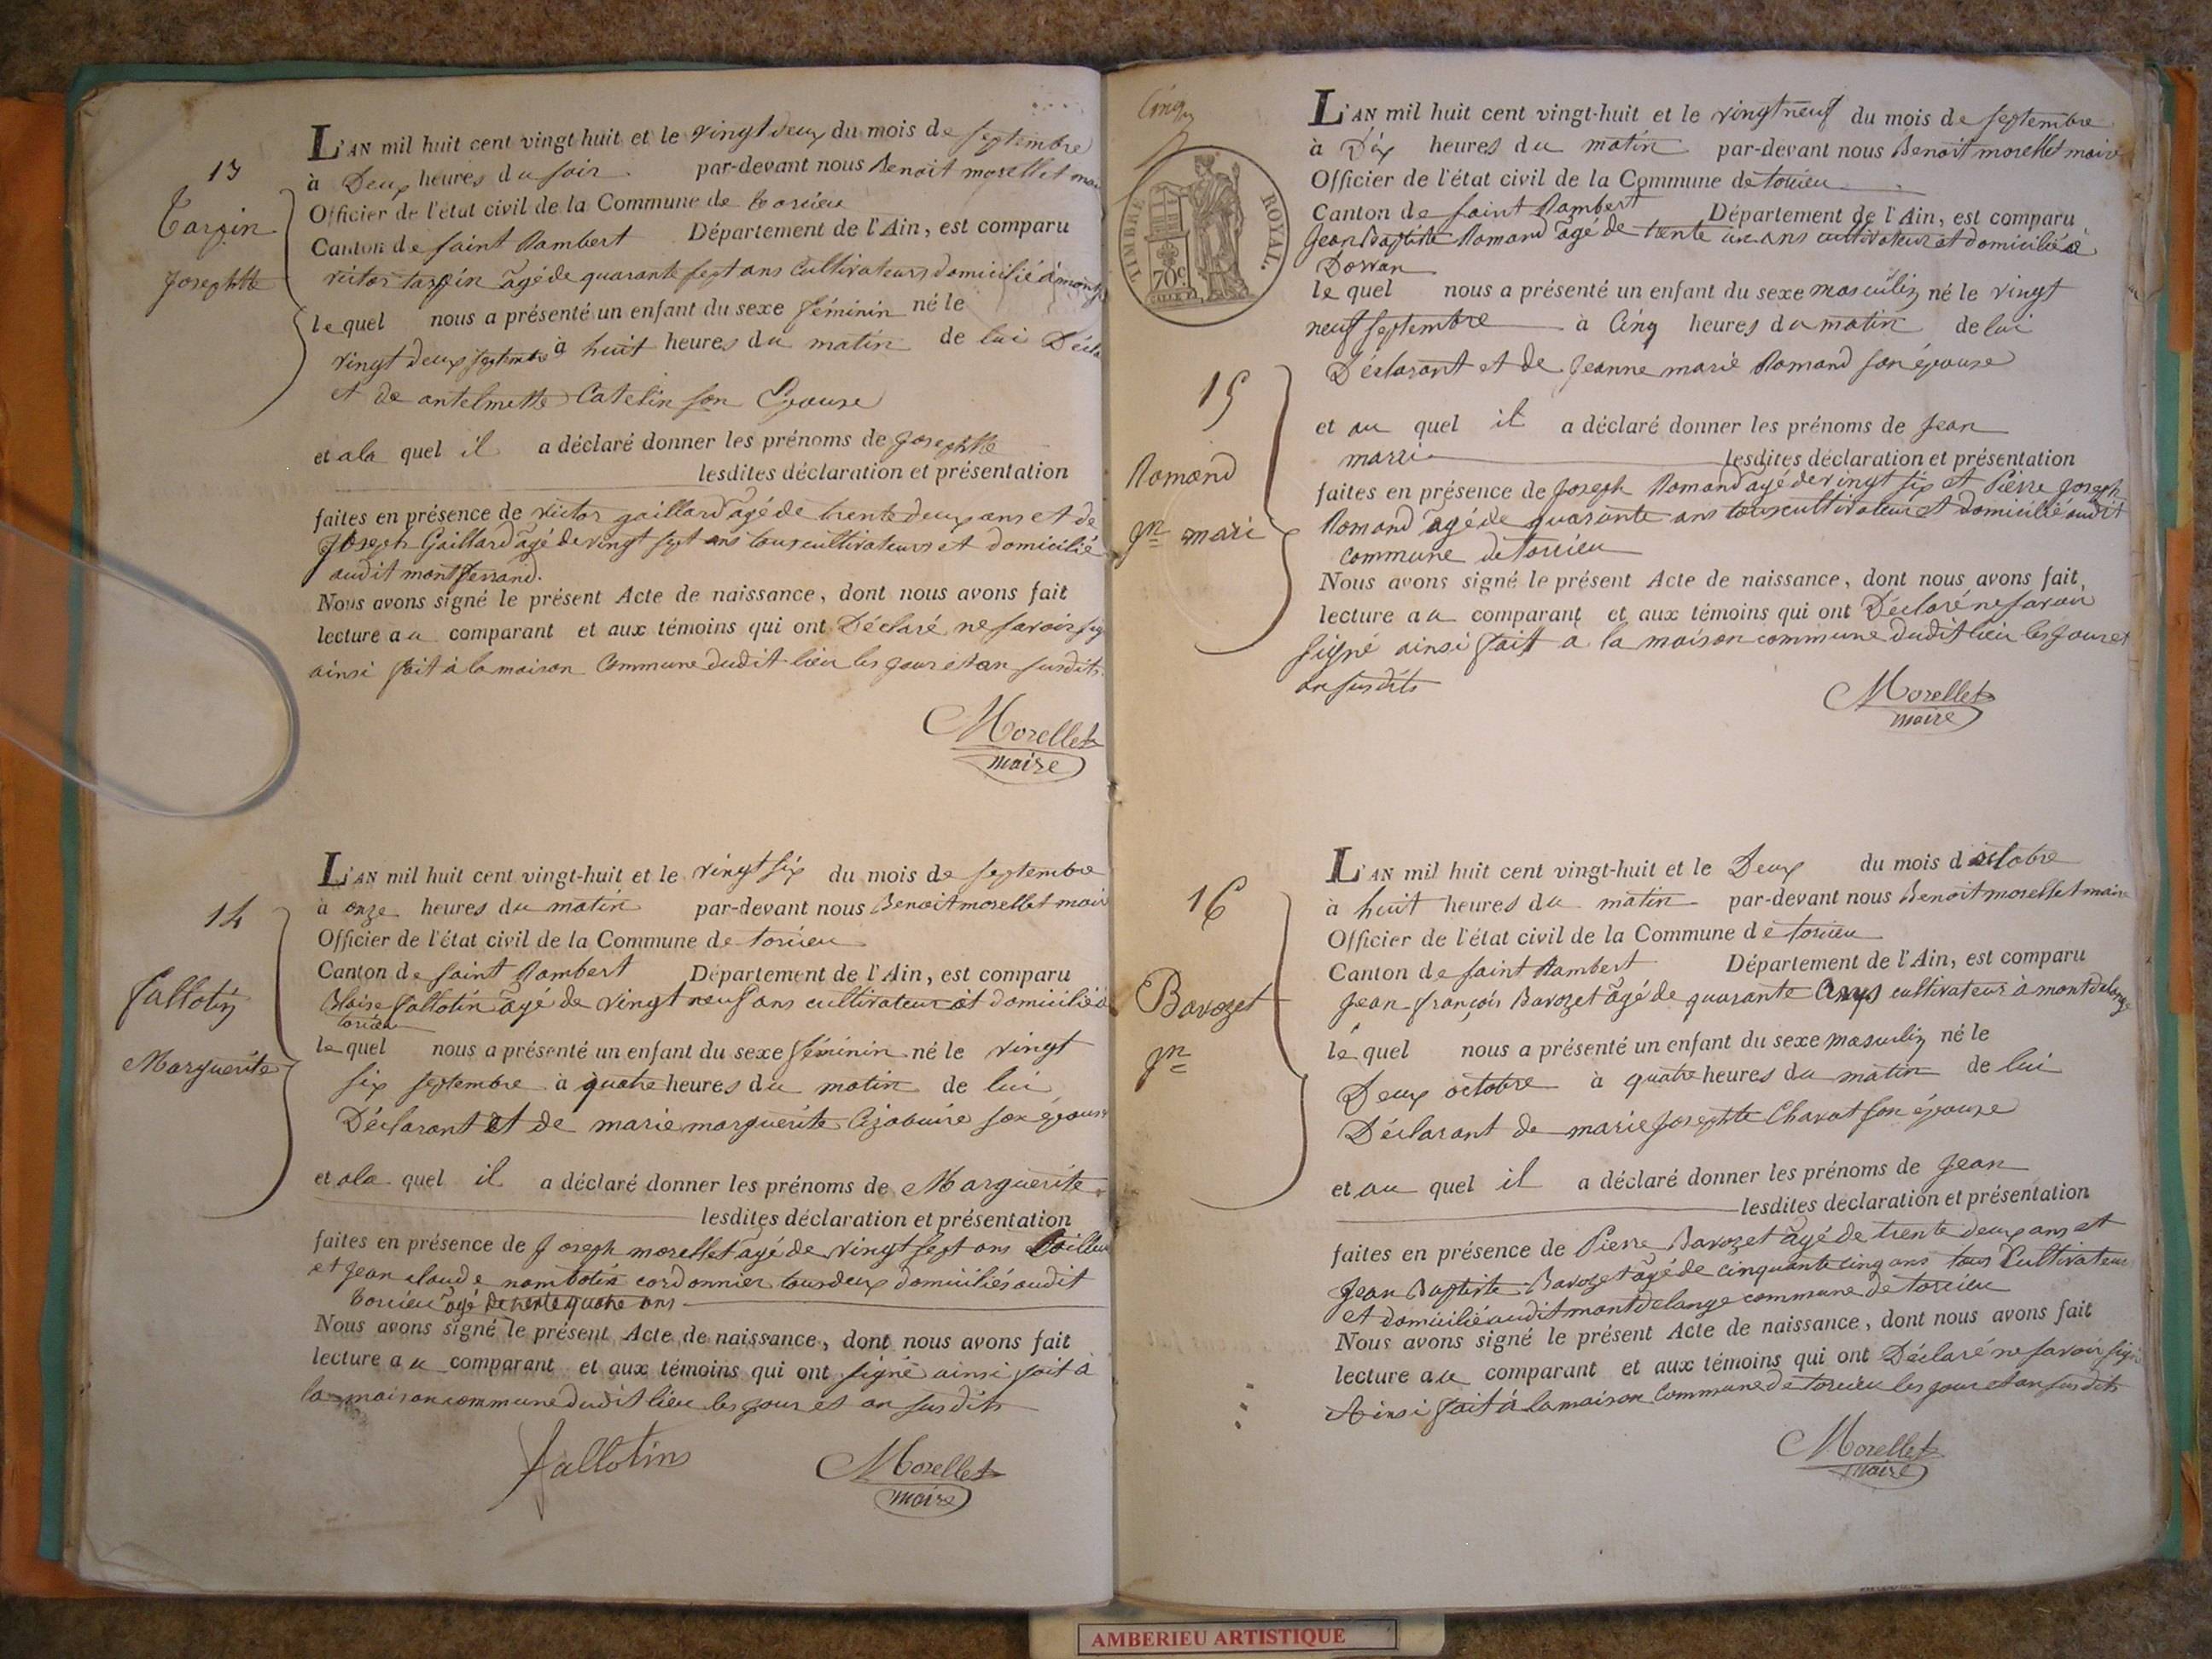 13
Tarpin
Josephtte
L'AN mil huit cent vingt-huit et le vingt deux du mois de septembre
à Deux heures du soir par-devant nous Benoit morellet
Officier de l'état civil de la Commune de torcieu
Canton de saint Rambert Département de l'Ain, est comparu
victor tarpin âgé de quarante sept ans cultivateurs domicilié à
le quel nous a présenté un enfant du sexe féminin né le
vingt deux septembre à huit heures du matin de lui
et de antelmette Catelin son Epouse
et a la quel il a déclaré donner les prénoms de josephtte
lesdites déclaration et présentation
faites en présence de victor gaillard âgé de trente deux ans et de
Joseph Gaillard âgé de vingt sept ans tous cultivateurs et domicilié
audit montferrand.
Nous avons signé le présent Acte de naissance, dont nous avons fait
lecture au comparant et aux témoins qui ont Déclaré ne savoir
ainsi fait à la maison Commune dudit lieu les jour et an susdits
Morellet
maire
14
fallotin
Marguerite
L'AN mil huit cent vingt-huit et le vingt six du mois de septembre
à onze heures du matin par-devant nous Benoit morellet mair
Officier de l'état civil de la Commune de torcieu
Canton de saint Rambert Département de l'Ain, est comparu
Blaise fallotin âgé de vingt neuf ans cultivateur et domicilié à
torcieu
le quel nous a présenté un enfant du sexe féminin né le vingt
six septembre à quatre heures du matin de lui
Déclarant et de marie marguerite son épouse
et a la quel il a déclaré donner les prénoms de Marguerite
lesdites déclaration et présentation
faites en présence de Joseph morellet âgé de vingt sept ans
et jean claude cordonnier tous deux domiciliés audit
torcieu âgé de trente quatre ans
Nous avons signé le présent Acte de naissance, dont nous avons fait
lecture au comparant et aux témoins qui ont signé ainsi fait à
la maison commune dudit lieu les jour et an susdits
fallotins
Morellet
maire
Cinq
TIMBRE ROYAL.
70c.
15
Romand
jn mari
L'AN mil huit cent vingt-huit et le vingt neuf du mois de septembre
à Dix heures du matin par-devant nous Benoit morellet maire
Officier de l'état civil de la Commune de torcieu
Canton de saint Rambert Département de l'Ain, est comparu
Jean Baptiste Romand âgé de trente un ans cultivateur et domicilié à
Dorvan
le quel nous a présenté un enfant du sexe masculin né le vingt
neuf septembre à Cinq heures du matin de lui
Déclarant et de Jeanne marie Romand son épouse
et au quel il a déclaré donner les prénoms de Jean
marri
lesdites déclaration et présentation
faites en présence de Joseph Romand âgé de vingt six et Pierre Joseph
Romand âgé de quarante ans tous cultivateur et domicilié audit
commune de torcieu
Nous avons signé le présent Acte de naissance, dont nous avons fait
lecture au comparant et aux témoins qui ont Déclaré ne savoir
signé ainsi fait a la maison commune dudit lieu les jour et
an susdits
Morellet
maire
16
Bavozet
jn
L'AN mil huit cent vingt-huit et le Deux du mois d octobre
à huit heures du matin par-devant nous Benoit morellet maire
Officier de l'état civil de la Commune de torcieu
Canton de saint Rambert Département de l'Ain, est comparu
Jean françois Bavozet âgé de quarante cultivateur à montdelange
le quel nous a présenté un enfant du sexe masculin né le
Deux octobre à quatre heures du matin de lui
Déclarant de marie Josephte Chavat son épouse
et au quel il a déclaré donner les prénoms de Jean
lesdites déclaration et présentation
faites en présence de Pierre Bavozet âgé de trente deux ans et
Jean Baptiste Bavozet âgé de cinquante cinq ans tous Cultivateur
et domicilié audit montdelange commune de torcieu
Nous avons signé le présent Acte de naissance, dont nous avons fait
lecture au comparant et aux témoins qui ont Déclaré ne savoir signé
Ainsi fait à la maison commune de torcieu les jour et an susdits
Morellet
maire
AMBERIEU ARTISTIQUE